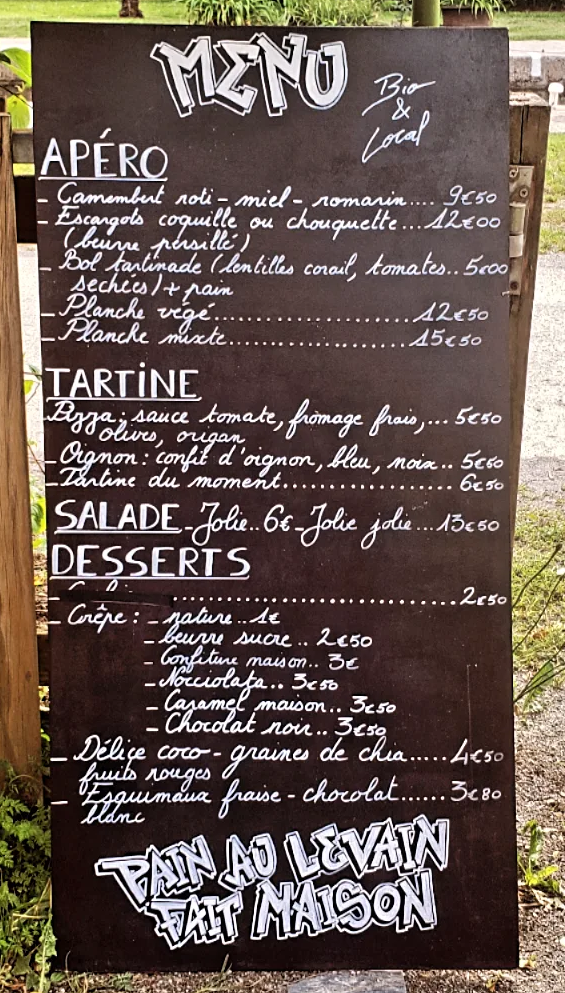 MENU
Bio
&
Local
APÉRO
- Camembert roti - miel - romarin.... 9€50
- Escargots coquille ou chouquette...12€00
(beurre persillé)
- Bol tartinade (lentilles corail, tomates.. 5€00
sechées) + pain
- Planche végé......................12€50
- Planche mixte.....................15€50
TARTINE
- Pizza: sauce tomate, fromage frais,... 5€50
olives, origan
- Oignon: confit d'oignon, bleu, noix.. 5€50
- Tartine du moment.................. 6€50
SALADE - Jolie..6€ - Jolie jolie...13€50
DESSERTS
- ..............................2€50
- Crêpe : - nature..1€
- beurre sucre .. 2€50
- Confiture maison.. 3€
- Nocciolata.. 3€50
- Caramel maison.. 3€50
- Chocolat noir.. 3€50
- Délice coco - graines de chia.....4€50
fruits rouges
- Esquimaux fraise - chocolat......3€80
blanc
PAIN AU LEVAIN
FAIT MAISON